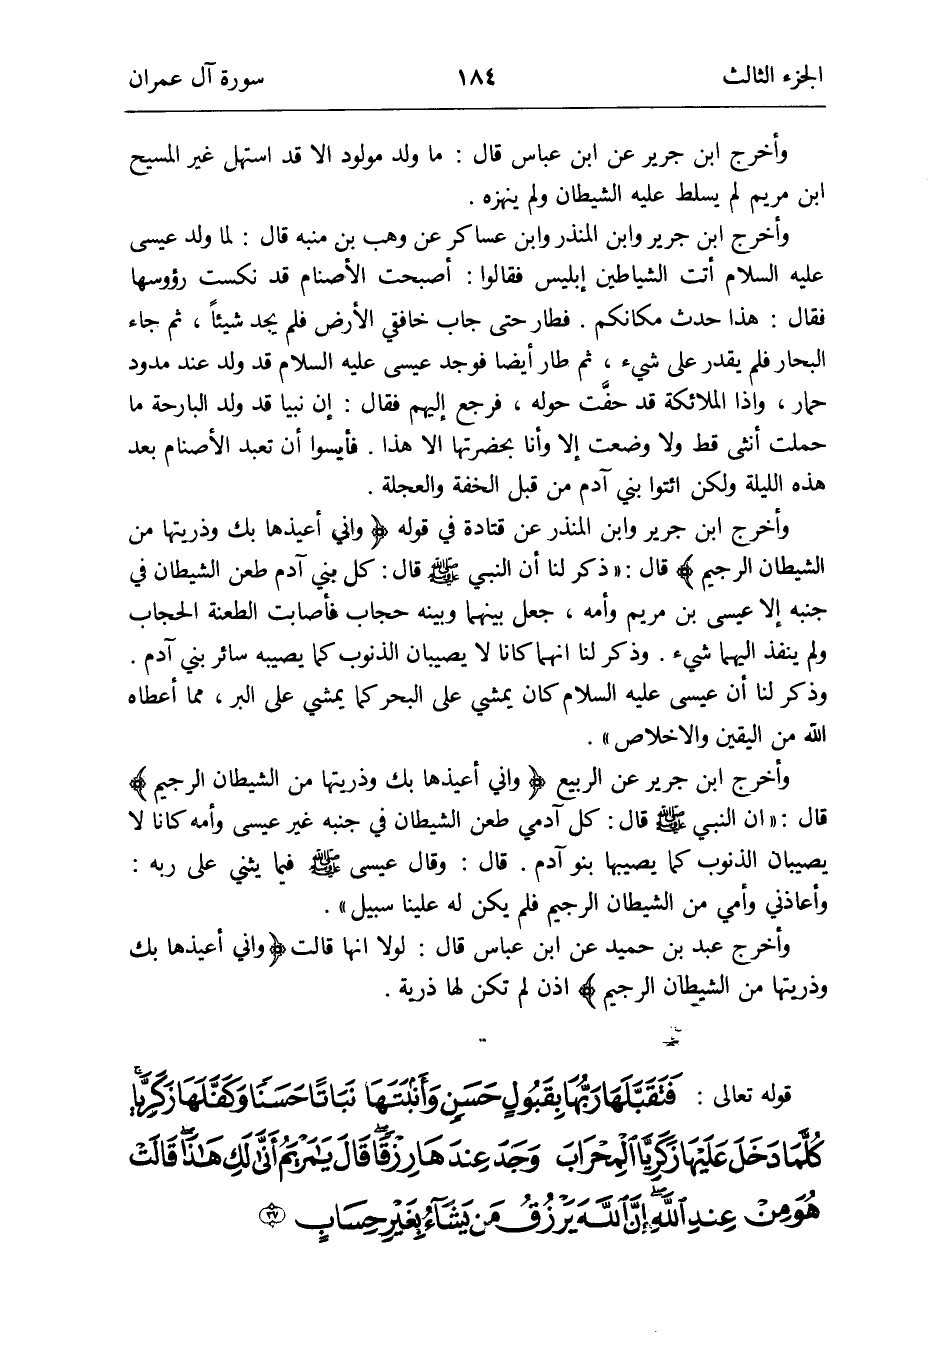 الجزء الثالث ١٨٤ سورة آل عمران
وأخرج ابن جرير عن ابن عباس قال : ما ولد مولود الا قد استهل غير المسيح
ابن مريم لم يسلط عليه الشيطان ولم ينهزه .
وأخرج ابن جرير وابن المنذر وابن عساكر عن وهب بن منبه قال : لما ولد عيسى
عليه السلام أتت الشياطين إبليس فقالوا : أصبحت الأصنام قد نكست رؤوسها
فقال : هذا حدث مكانكم . فطار حتى جاب خافقي الأرض فلم يجد شيئاً ، ثم جاء
البحار فلم يقدر على شيء ، ثم طار أيضا فوجد عيسى عليه السلام قد ولد عند مدود
حمار ، واذا الملائكة قد حفَّت حوله ، فرجع إليهم فقال : إن نبيا قد ولد البارحة ما
حملت أنثى قط ولا وضعت إلا وأنا بحضرتها الا هذا . فأيسوا أن تعبد الأصنام بعد
هذه الليلة ولكن ائتوا بني آدم من قبل الخفة والعجلة .
وأخرج ابن جرير وابن المنذر عن قتادة في قوله ﴿ واني أعيذها بك وذريتها من
الشيطان الرجيم ﴾ قال : « ذكر لنا أن النبي ﷺ قال : كل بني آدم طعن الشيطان في
جنبه إلا عيسى بن مريم وأمه ، جعل بينهما وبينه حجاب فأصابت الطعنة الحجاب
ولم ينفذ اليهما شيء . وذكر لنا انهما كانا لا يصيبان الذنوب كما يصيبه سائر بني آدم .
وذكر لنا أن عيسى عليه السلام كان يمشي على البحر كما يمشي على البر ، مما أعطاه
الله من اليقين والاخلاص » .
وأخرج ابن جرير عن الربيع ﴿ واني أعيذها بك وذريتها من الشيطان الرجيم ﴾
قال : « ان النبي ﷺ قال : كل آدمي طعن الشيطان في جنبه غير عيسى وأمه كانا لا
يصيبان الذنوب كما يصيبها بنو آدم . قال : وقال عيسى ﷺ فيما يثني على ربه :
وأعاذني وأمي من الشيطان الرجيم فلم يكن له علينا سبيل » .
وأخرج عبد بن حميد عن ابن عباس قال : لولا انها قالت ﴿ واني أعيذها بك
وذريتها من الشيطان الرجيم ﴾ اذن لم تكن لها ذرية .
قوله تعالى : فَتَقَبَّلَهَا رَبُّهَا بِقَبُولٍ حَسَنٍ وَأَنۢبَتَهَا نَبَاتًا حَسَنًا وَكَفَّلَهَا زَكَرِيَّا ۖ
كُلَّمَا دَخَلَ عَلَيْهَا زَكَرِيَّا ٱلْمِحْرَابَ وَجَدَ عِندَهَا رِزْقًا ۖ قَالَ يَٰمَرْيَمُ أَنَّىٰ لَكِ هَٰذَا ۖ قَالَتْ
هُوَ مِنْ عِندِ ٱللَّهِ ۖ إِنَّ ٱللَّهَ يَرْزُقُ مَن يَشَآءُ بِغَيْرِ حِسَابٍ ٣٧